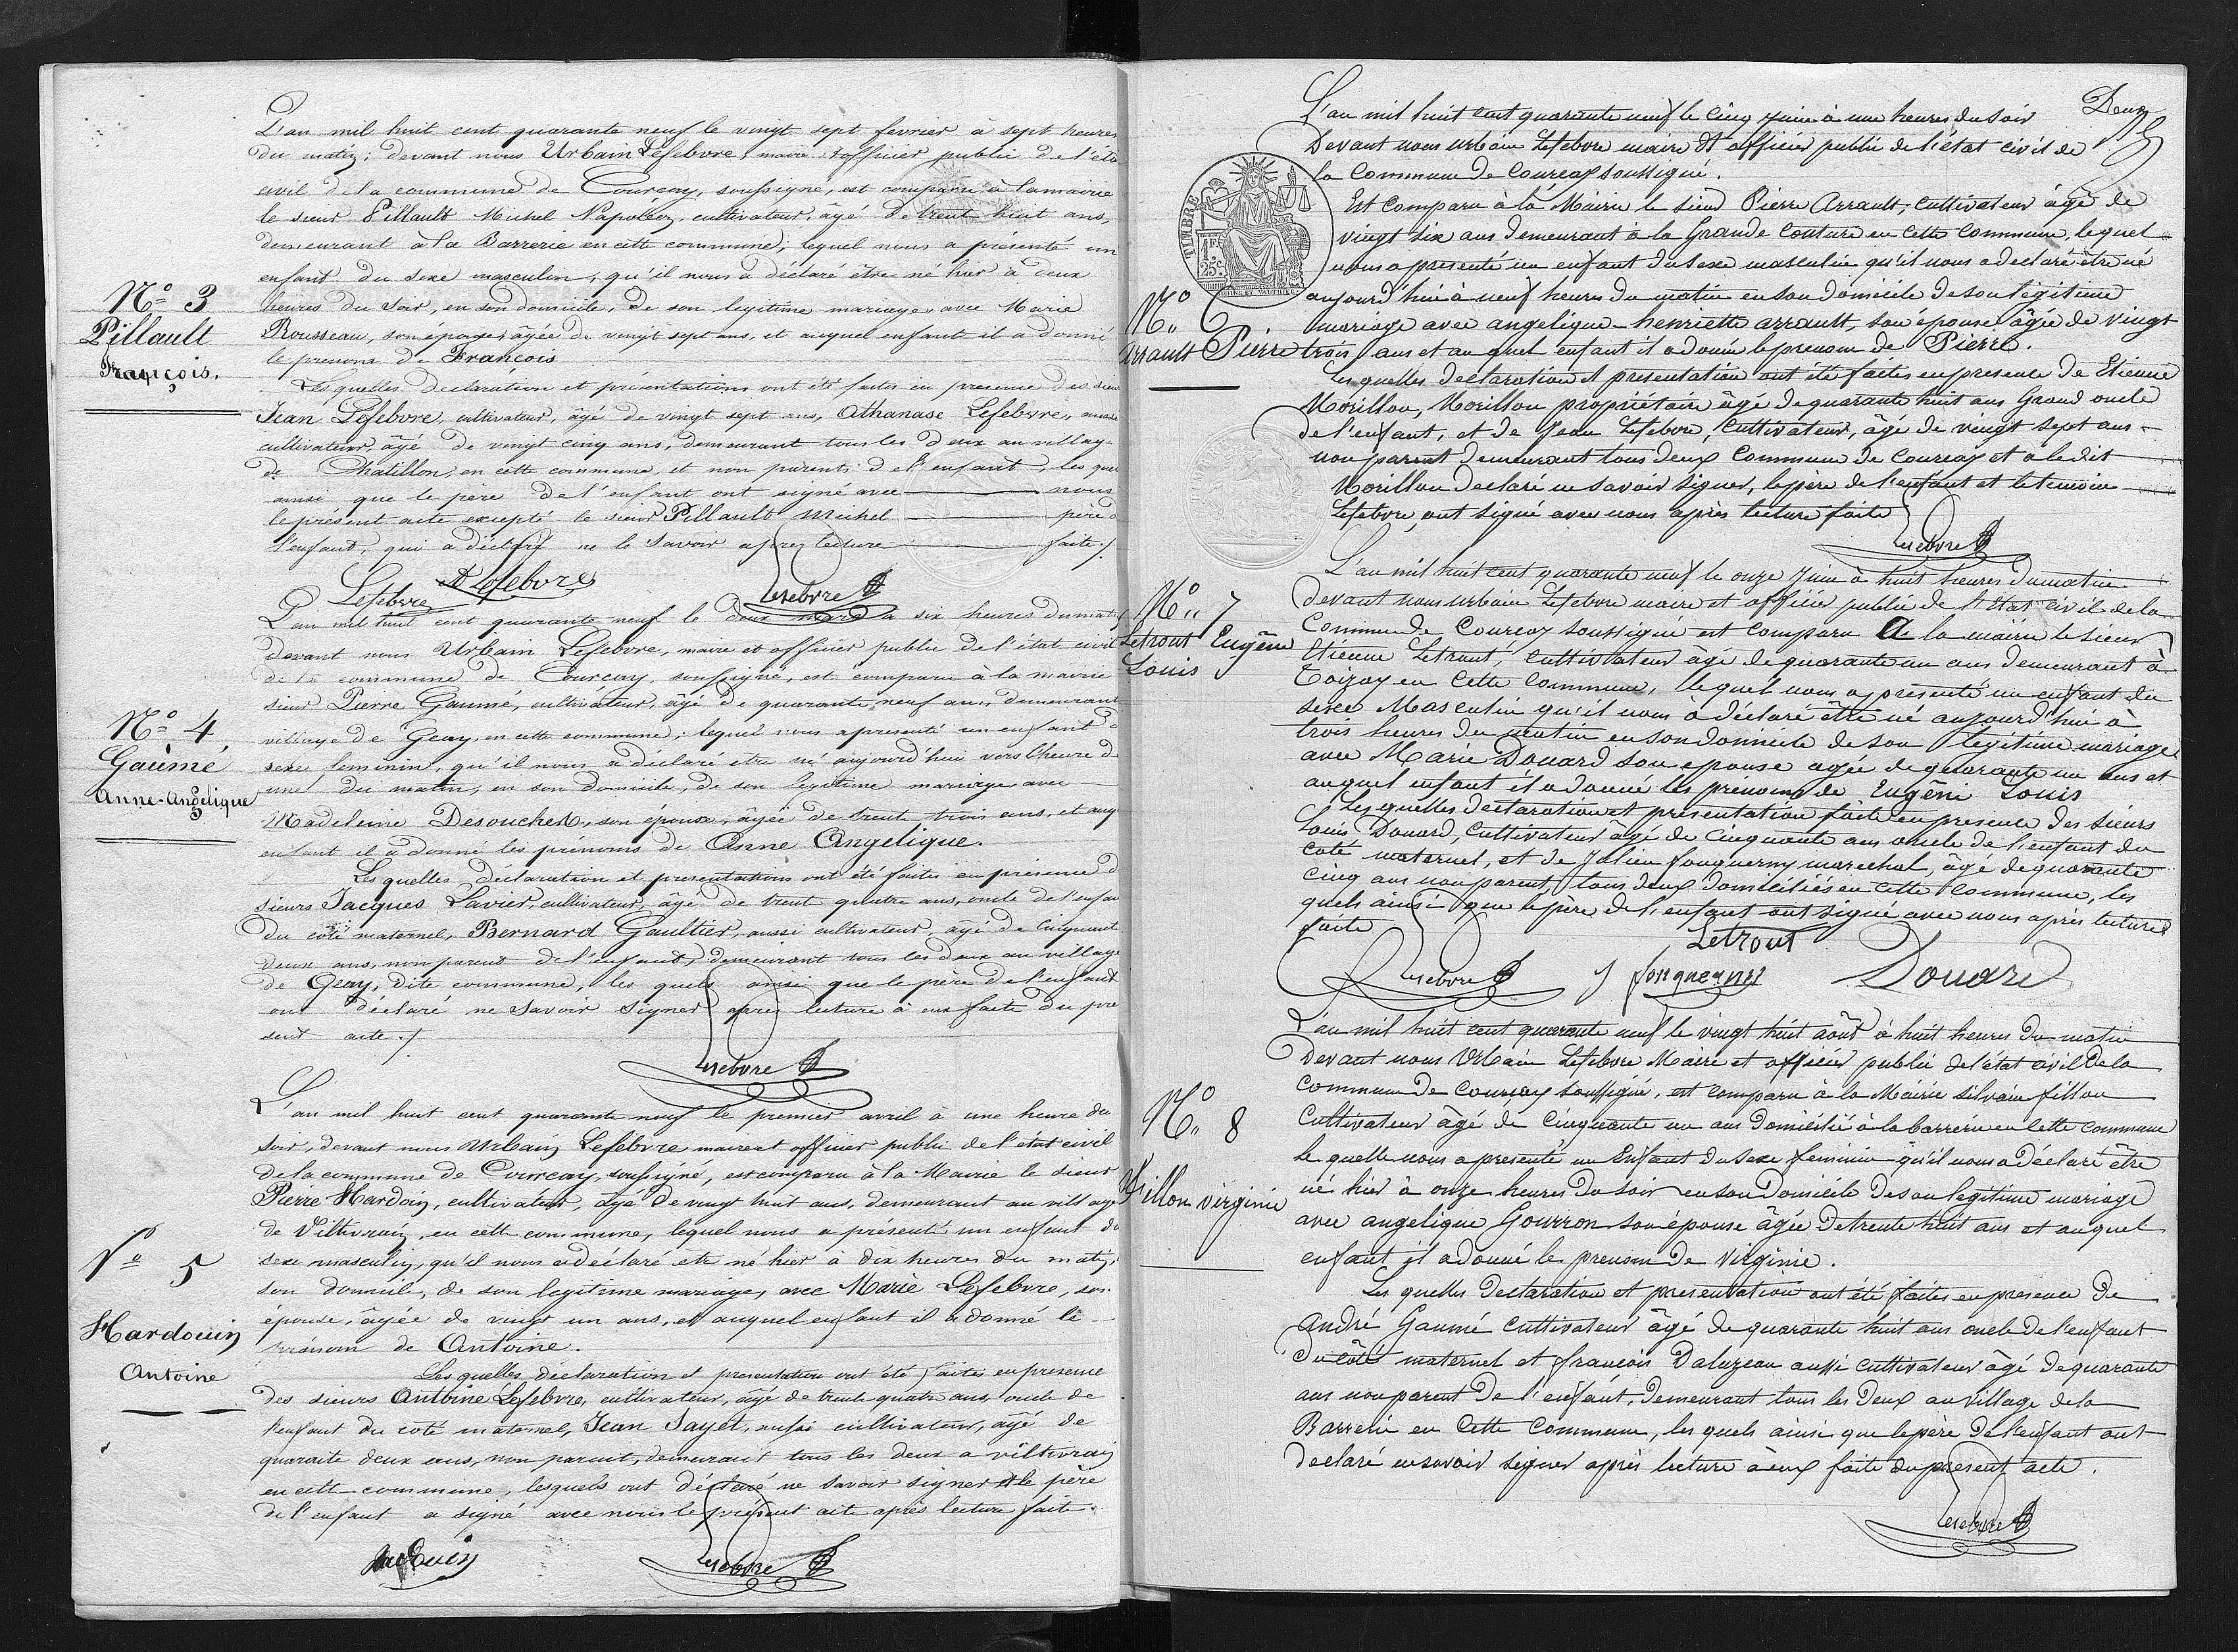 L'an mil huit cent quarante neuf le vingt sept fevrier à sept heures
du matin; devant nous Urbain Lefebvre, maire et officier public de l'éta
civil de la commune de Courçay, soussigné, est comparu à la mairie
le sieur Pillault Michel Napoléon, cultivateur, âgé de trent huit ans,
demeurant à la Barrerie en cette commune; lequel nous a présenté un
enfant du sexe masculin, qu'il nous a déclaré être né hier à deux
heures du soir, en son domicile, de son legitime mariage, avec Marie
Rousseau, son épouse, âgée de vingt sept ans, et auquel enfant il a donné
le prenom de François
Les quelles declaration et présentations ont été faites en presence des sieu
Jean Lefebvre, cultivateur, âgé de vingt sept ans, Athanase Lefebvre, aussi
cultivateur, âgé de vingt cinq ans, demeurant tous les deux au village
de Chatillon, en cette commune, et non parents de l'enfant, les quels
ainsi que le père de l'enfant ont signé avec nous
le présent acte excepté le sieur Pillault Michel père d
l'enfant, qui a déclaré ne le savoir après lecture faite ./.
Lefebvre A Lefebvre Lefebvre
N° 3
Pillault
François.
L'an mil huit cent quarante neuf le deux mars à six heures du matin
devant nous Urbain Lefebvre, maire et officier public de l'état civil
de la commune de Courçay, soussigné, est comparu à la mairie
sieur Pierre Gaumé, cultivateur, âgé de quarante neuf ans, demeurant
village de Geay, en cette commune; lequel nous a presenté un enfant d
sexe feminin, qu'il nous a déclaré être né aujourd'hui vers l'heure d
une du matin, en son domicile, de son legitime mariage avec
Madeleine Desouches, son épouse, âgée de trente trois ans, et auq
enfant il a donné les prénoms de Anne Angelique.
Les quelles déclaration et presentations ont été faites en présence d
sieurs Jacques Lavier, cultivateur, âgé de trent quatre ans, oncle de l'enfan
du coté maternel, Bernard Gaultier, aussi cultivateur, âgé de cinquant
deux ans, non parent de l'enfant, demeurant tous les deux au village
de Geay, dite commune, les quels ainsi que le père de l'enfant
ont déclaré ne savoir signer après lecture à eux faite du pre
sent acte ./.
Lefebvre
N° 4
Gaumé
Anne-Angélique
L'an mil huit cent quarante neuf le premier avril à une heure du
soir, devant nous Urbain Lefebvre maire et officier public de l'état civil
de la commune de Courçay, soussigné, est comparu à la Mairie le sieur
Pierre Hardoin, cultivateur, âgé de vingt huit ans, demeurant au village
de Viltivrain, en cette commune, lequel nous a présenté un enfant du
sexe masculin, qu'il nous a déclaré etre né hier à dix heures du matin,
son domicile, de son legitime mariage, avec Marie Lefebvre, son
épouse, âgée de vingt un ans, et auquel enfant il a donné le
prénom de Antoine.
Les quelles déclaration et presentation ont été faites en presence
des sieurs Antoine Lefebvre, cultivateur, âgé de trente quatre ans, oncle de
l'enfant du coté maternel, Jean Sayet, aussi cultivateur, agé de
quarante deux ans, non parent, demeurant tous les deux a viltivrain
en cette commune, lesquels ont déclaré ne savoir signer et le père
de l'enfant a signé avec nous le présent acte après lecture faite.
hardouin Lefebvre
N° 5
Hardouin
Antoine
Deux
L'an mil huit cent quarante neuf le cinq juin à une heures du soir
Devant nous urbain Lefebvre maire et officier public de l'état civil de
la Commune de Courcay soussigné.
Est comparu à la Mairie le sieur Pierre Arrault, cultivateur âgé de
vingt six ans demeurant à la Grande Couture en cette Commune, lequel
nous a presenté un enfant du sexe masculin qu'il nous a declaré être né
aujourd'hui à neuf heures du matin en son domicile de son légitime
mariage avec angelique henriette arrault, son épouse âgée de vingt
trois ans et au quel enfant il a donné le prenom de Pierre.
Les quelles declaration et presentation ont été faites en presence de Etienne
Morillon, Morillon propriétaire âgé de quarante huit ans Grand oncle
de l'enfant, et de Jean Lefebvre, Cultivateur, âgé de vingt sept ans
non parent demeurant tous deux Commune de Courcay et a le dit
Morillon declaré ne savoir signer, le père de l'enfant et le temoin
Lefebvre, ont signé avec nous après lecture faite
Lefebvre
TIMBRE
1F.
25c.
N° 6
Arrault Pierre
L'an mil huit cent quarante neuf le onze Juin à huit heures du matin
devant nous urbain Lefebvre maire et officier public de l'Etat civil de la
Commune de Courcay soussigné est comparu A la mairie le sieur
Etienne Letrout, cultivateur âgé de quarante un ans demeurant à
Toizay en cette Commune, lequel nous a presenté un enfant du
sexe Masculin qu'il nous à déclaré être né aujourd'hui à
trois heures du matin en son domicile de son légitime mariage
avec Marie Douard son epouse agée de quarante un ans et
auquel enfant il a donné les prénoms de Eugêne Louis
Les quelles declaration et présentation faite en presence des sieurs
Louis Douard, Cultivateur agé de cinquante ans oncle de l'enfant du
coté maternel, et de Julien fouquerny marechal, âgé de quarante
cinq ans non parent, tous deux domiciliés en cette commune, les
quels ainsi que le père de l'enfant ont signé avec nous après lecture
faite
Letrout
Lefebvre J fouquerny Douard
N° 7
Letrout Eugêne
Louis
L'an mil huit cent quarante neuf le vingt huit août à huit heures du matin
Devant nous Urbain Lefebvre Maire et officier public de l'état civil de la
commune de Courçay soussigné, est comparu à la Mairie silvain fillon
Cultivateur âgé de cinquante un ans domicilié à la barrerie en cette commune
Le quelle nous a presenté un Enfant du sexe feminin qu'il nous a déclaré être
né hier à onze heures du soir en son Domicile de son legitime mariage
avec angelique Gourron son épouse âgée de trente huit ans et auquel
enfant il a donné le prenom de Virginie.
Les quelles declaration et presentation ont été faites en presence de
André Gaumé cultivateur âgé de quarante huit ans oncle de l'enfant
du côté maternel et françois Daluzeau aussi cultivateur âgé de quarante
ans non parent de l'enfant, Demeurant tous les deux au village de la
Barrerie en Cette Commune, les quels ainsi que le père de l'enfant ont
declaré ne savoir signer après lecture à eux faite du présent acte.
Lefebvre
N° 8
Fillon virginie